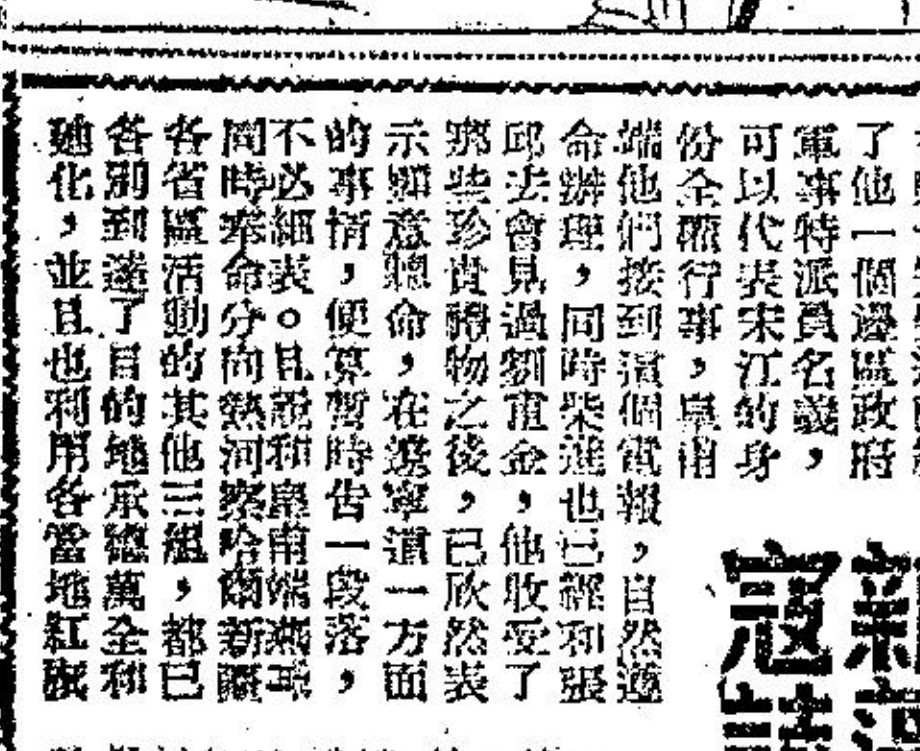 了他一個邊區政府
軍事特派員名義，
可以代表宋江的身
份全權行事，皇甫
端他們接到這個電報，自然遵
命辦理，同時柴進也已經和張
邱去會見過劉重金，他收受了
那些珍貴禮物之後，已欣然表
示願意聽命，在遼寧這一方面
的事情，便算暫時告一段落，
不必細表。且說和皇甫端燕
同時奉命分向熱河察哈爾新疆
各省區活動的其他三組，都已
各別到達了目的地承德萬全和
廸化，並且也利用各當地紅旗
新
寇